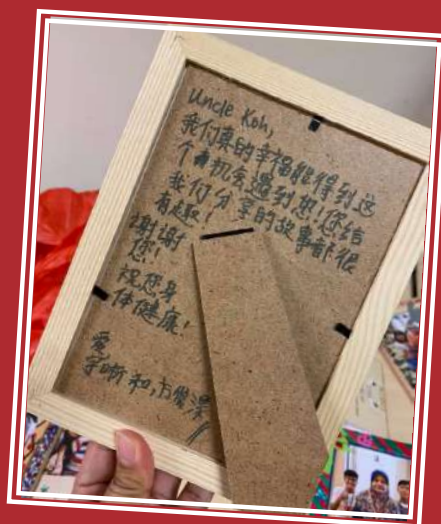 Uncle Koh,
我们真的幸福能得到这
个机会遇到您!您给
我们分享的故事都很
有趣!
谢谢
您!
祝您身
体健康!
爱
宇晰 和